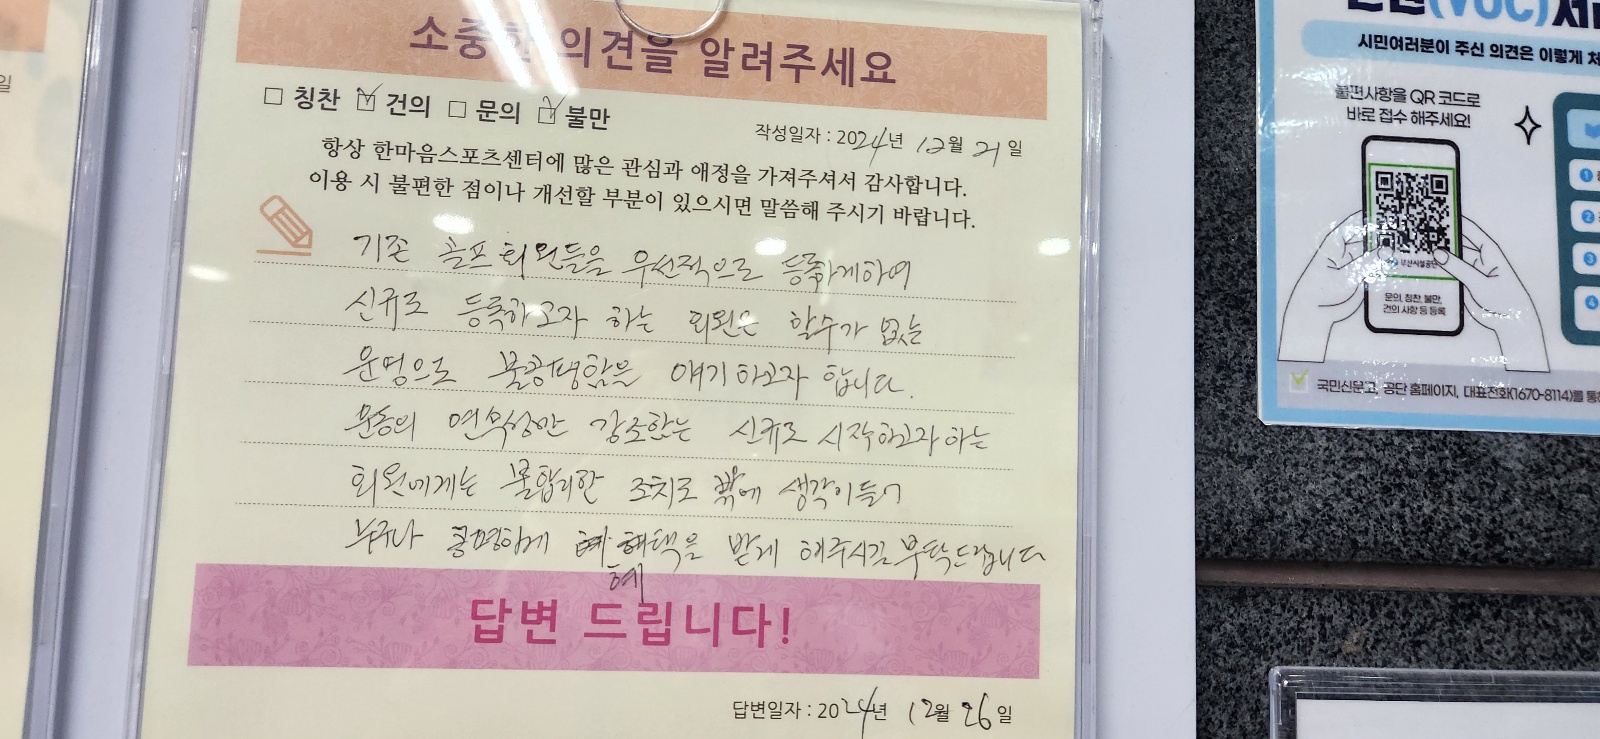 소중한 의견을 알려주세요
□ 칭찬 ☑ 건의 □ 문의 ☑ 불만
작성일자 : 2024년 12월 21일
항상 한마음스포츠센터에 많은 관심과 애정을 가져주셔서 감사합니다.
이용 시 불편한 점이나 개선할 부분이 있으시면 말씀해 주시기 바랍니다.
기존 골프 회원들을 우선적으로 등록하게하여
신규로 등록하고자 하는 회원은 할수가 없는
운영으로 불공평함을 얘기하고자 합니다.
운동의 연속성만 강조하는 신규로 시작하고자 하는
회원에게는 불합리한 조치로 밖에 생각이들어
누구나 공평하게 혜택을 받게 해주시길 부탁드립니다
답변 드립니다!
답변일자 : 2024년 12월 26일
일
(VOC)
시민여러분이 주신 의견은 이렇게
불편사항을 QR 코드로
바로 접수 해주세요!
부산시설공단
문의, 칭찬, 불만,
건의 사항 등 등록
1
2
3
4
국민신문고, 공단 홈페이지, 대표전화(1670-8114)를 통